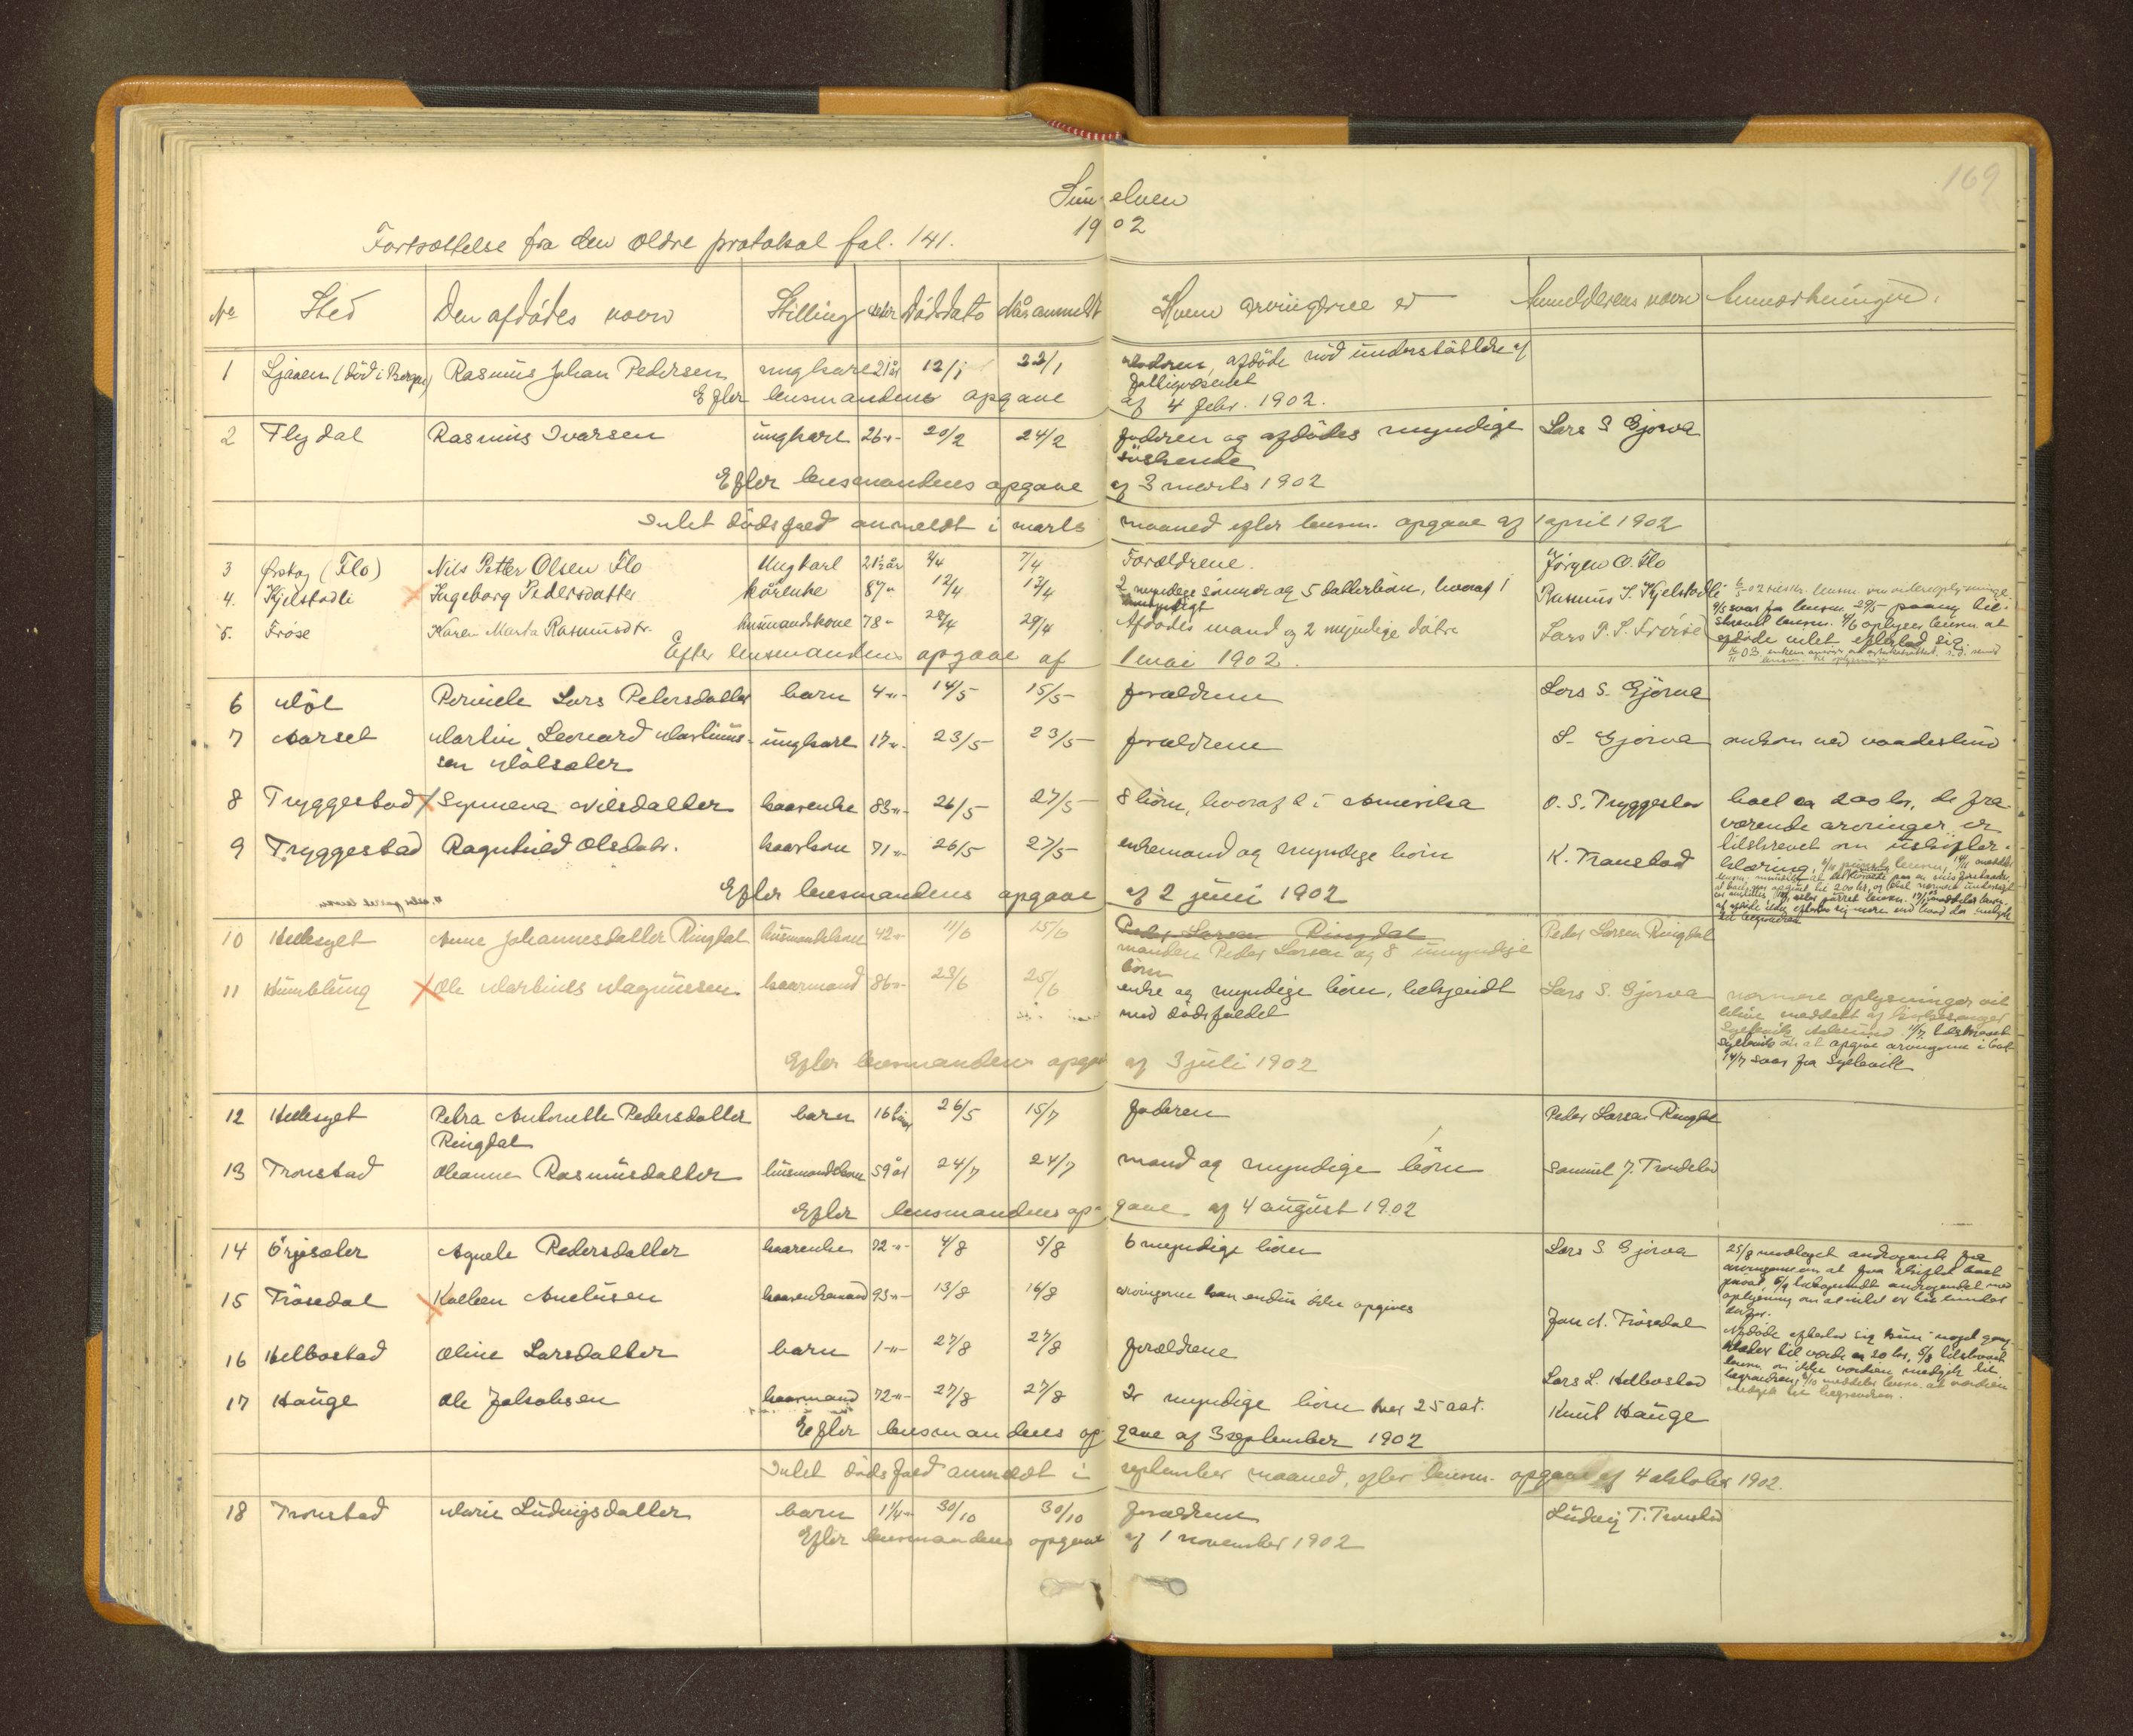 169
Sunelven
1902
Fortsættelse fra den ældre protokol fol. 141.
No Sted Den afdødes navn Stilling Alder Dødsdato Når anmeldt Hvem arvingerne er Anmelderens navn Anmærkninger.
1 Ljaaen (død i Bergen) Rasmus Johan Pedersen ungkarl 21 år 12/1 22/1 moderen, afdøde nød understøttelse af
fattigvæsenet
Efter lensmandens opgave af 4 febr. 1902.
2 Flydal Rasmus Ivarsen ungkarl 26-"- 20/2 24/2 faderen og afdødes myndige Lars S Gjørva
søskende
Efter lensmandens opgave af 3 marts 1902
Intet dødsfald anmeldt i marts maaned efter lensm. opgave af 1 april 1902
3 Ørskog (Flo) Nils Petter Olsen Flo Ungkarl 21½ år 2/4 7/4 Forældrene. Jørgen O. Flo
4. Kjelstadli Ingeborg Pedersdatter kårenke 87" 12/4 12/4 2 myndige sønner og 5 datterbørn, hvoraf 1 Rasmus I. Kjelstadli
umyndigt
5. Frøse Karen Marta Rasmusdtr. husmandskone 78" 28/4 29/4 Afdødes mand og 2 myndige døtre Lars P. S. Frøise
svar fra lensm. 29/5 paany til-
skrevet lensm. 4/6 oplyser lensm. at
afdøde intet efterlod sig.
Efter lensmandens opgave af 1 mai 1902.
6 Møl Pernele Lars Petersdatter barn 4-"- 14/5 15/5 forældrene Lars S. Gjørva
7 Aarset Martin Leonard Martinus- ungkarl 17-"- 23/5 23/5 forældrene S. Gjørva omkom ved vaadeskud
sen Mølsæter
8 Tryggestad Synneva Nilsdatter kaarenke 83-"- 26/5 27/5 8 børn, hvoraf 2 i Amerika O. S. Tryggestad boet ca 200 kr, de fra-
værende arvinger er
tilskrevet om uskifter-
klæring,
9 Tryggestad Ragnhild Olsdatr. kaarkone 71-"- 26/5 27/5 enkemand og myndige børn K. Tronstad
Efter lensmandens opgave af 2 juni 1902
10 Hellesylt Anne Johannesdatter Ringdal husmandskone 42-"- 11/6 15/6 Peder Larsen Ringdal Peder Larsen Ringdal
manden Peder Larsen og 8 umyndige
børn
11 Humblung Ole Martinus Magnussen kaarmand 86-"- 23/6 25/6 enke og myndige børn, bekjendt Lars S. Gjørva nærmere oplysninger vil
med dødsfaldet
blive meddelt af kirkesanger
14/7 svar fra Syltevik
Efter lensmandens opgave af 3 juli 1902
12 Hellesylt Petra Antonette Pedersdatter barn 16 timer 26/5 15/7 faderen Peder Larsen Ringdal
Ringdal
13 Tronstad Oleanna Rasmusdatter husmandskone 59 år 24/7 24/7 mand og myndige børn Samuel J. Tronstad
Efter lensmandens opgave af 4 august 1902
14 Ørjesæter Agnele Pedersdatter kaarenke 72-"- 4/8 5/8 6 myndige børn Lars S Gjørva 25/8 modtaget andragende fra
arvingerne om at faa skiftet boet
privat 5/9 tilbagesendt andragendet med
oplysning om at intet er til hinder
derfor.
15 Frøsedal Kolben Anelusen kaarenkemand 93-"- 13/8 16/8 arvingerne kan endnu ikke opgives Jan A. Frøsedal
Afdøde efterlod sig kun noget gang-
klæder til værdi ca 20 kr, 5/9 tilskrevet
lensm. om ikke værdien medgik til
begravelsen 4/10 meddeler lensm. at værdien
medgik til begravelsen.
16 Hellbostad Oline Larsdatter barn 1-"- 27/8 27/8 forældrene Lars L. Hellbostad
17 Hauge Ole Jakobsen kaarmand 72-"- 27/8 27/8 2 myndige børn over 25 aar. Knut Hauge
Efter lensmandens opgave af 3 september 1902
Intet dødsfald anmeldt i september maaned, efter lensm. opgave af 4 oktober 1902.
18 Tronstad Marie Ludvigsdatter barn 1¼-"- 30/10 30/10 forældrene Ludvig T. Tronstad
Efter lensmandens opgave af 1 november 1902